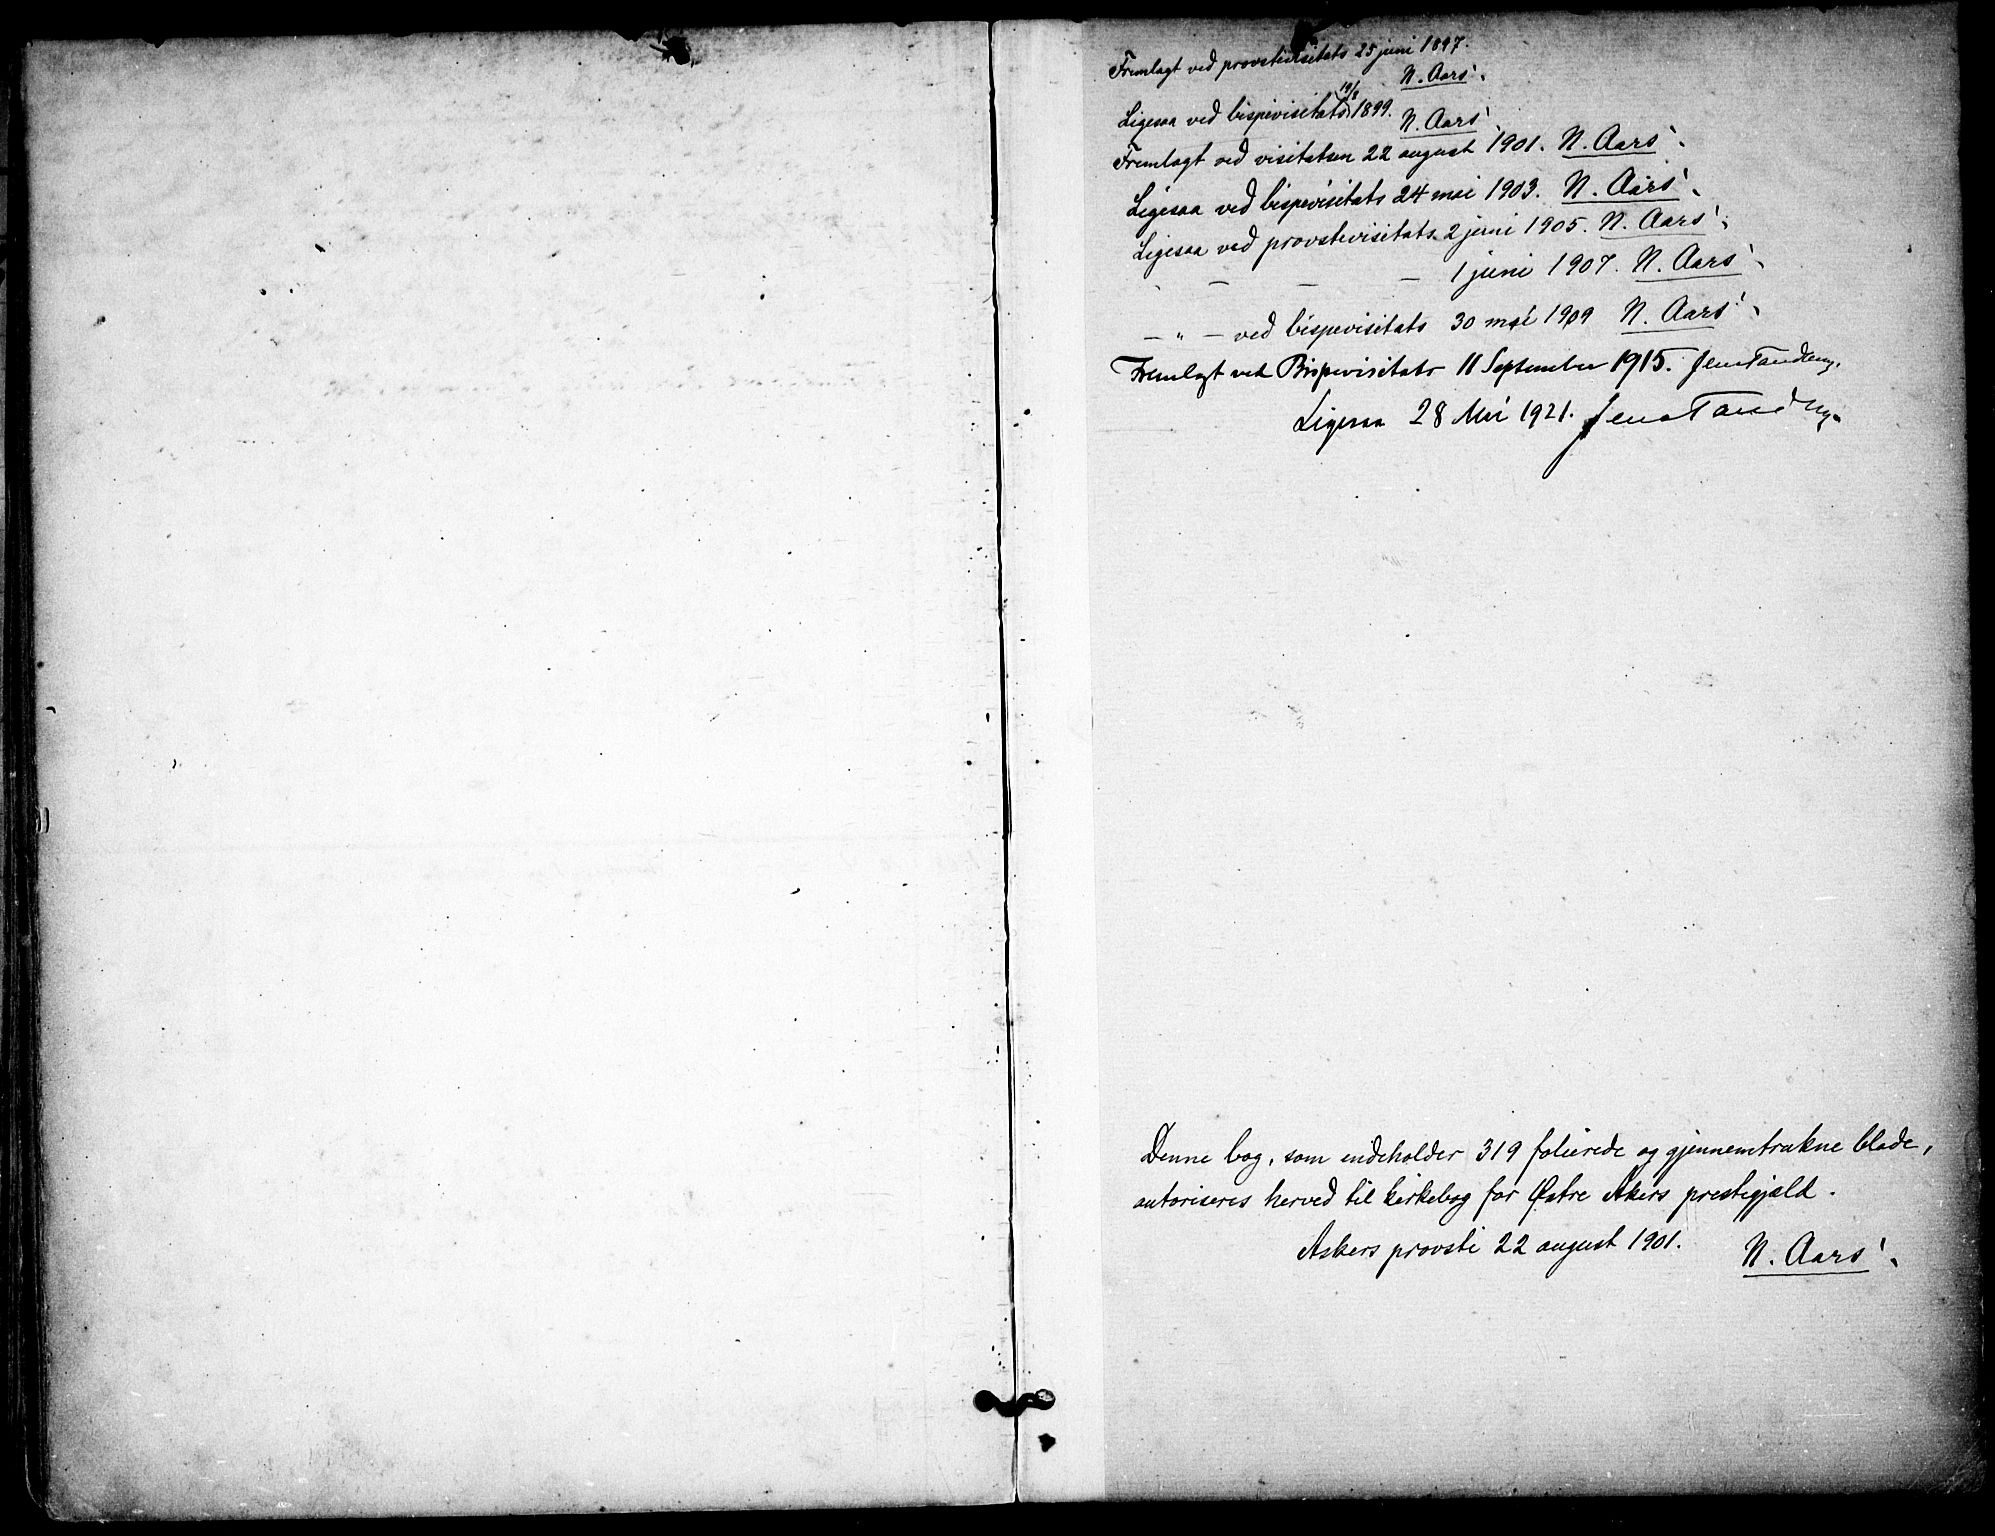 Fremlagt ved provstevisitats 25 juni 1897.
N. Aars.
Ligesaa ved bispevisitats 19/8 1899.
N. Aars.
Fremlagt ved visitatsen 22 august 1901. N. Aars.
Ligesaa ved bispevisitats 24 mai 1903. N. Aars.
Ligesaa ved provstevisitats 2 juni 1905. N. Aars.
— — — 1 juni 1907. N. Aars.
— " — ved bispevisitats 30 mai 1909 N. Aars.
Fremlagt ved Bispevisitats 11 September 1915. Jens Tandberg.
Ligesaa 28 Mai 1921. Jens Tandberg.
Denne bog, som indeholder 319 folierede og gjennemtrukne blade,
autoriseres herved til kirkebog for Østre Akers prestegjæld.
Askers provsti 22 august 1901.
N. Aars.